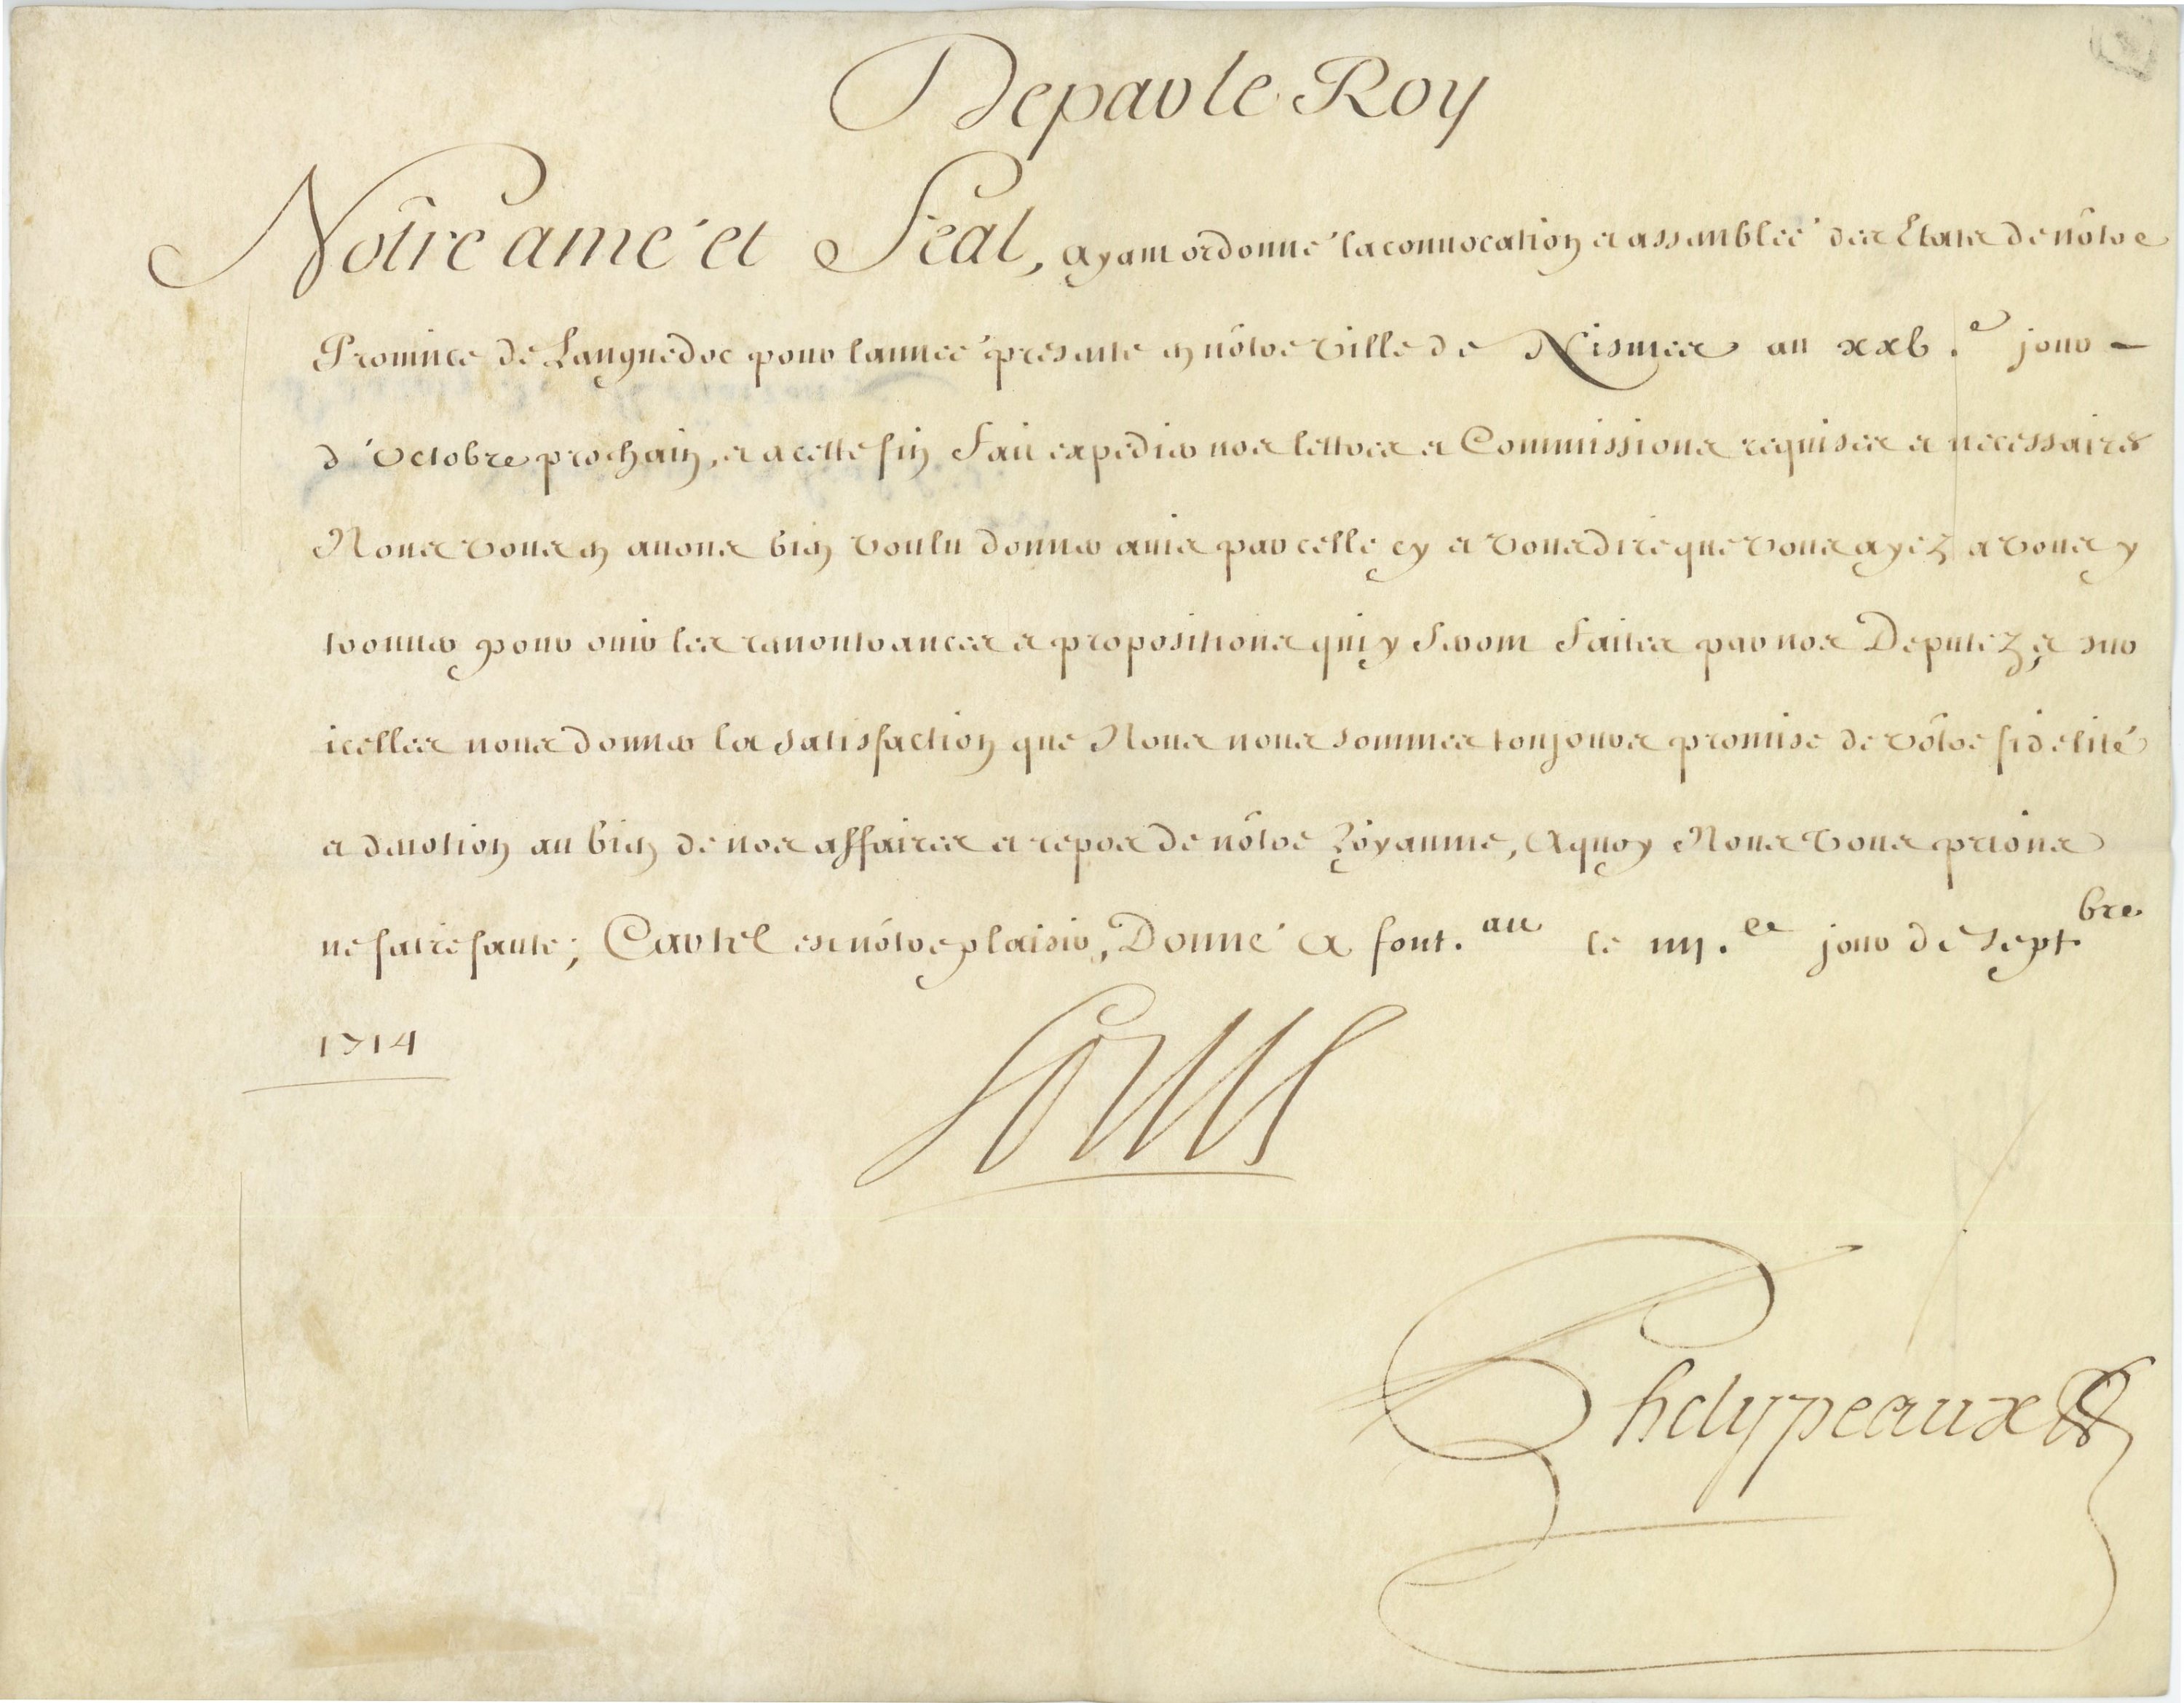 De par le Roy
Nôtre amé et Feal, Ayant ordonné la convocation et assemblée des Etats de nôtre
Province de Languedoc pour lannée presente en nôtre ville de Nismes au xxb.e jour -
d'Octobre prochain, et a cette fin fait expedier nos lettres et Commissions requises et necessaires
Nous vous en auons bien voulu donner auis par celle cy et vous dire que vous ayez a vous y
trouuer pour ouir les remontrances et propositions qui y seront faites par nos Deputez, et sur
icelles nous donner la satisfaction que Nous nous sommes toujours promise de vôtre fidelité
et deuotion au bien de nos affaires et repos de nôtre Royaume, A quoy Nous vous prions
ne faire faute; Car tel est nôtre plaisir, Donné a font.au le iiij.e jour de Sept.bre
1714
Louis
Phelypeaux